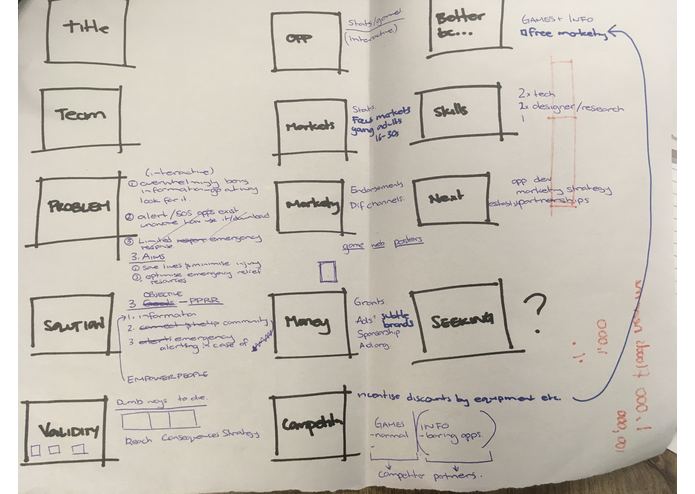 Title
Team
(interactive)
PROBLEM
① overwhelmingly boring
look for it
② alert/SOS apps exist
③ Limited emergency
response
3. AIMS
① save lives & minimise injury
② optimise emergency relief
resources
OBJECTIVE
3 Goals - PPRR
SOLUTION
1. information
2. connect community
3 alert emergency
alerting in case of
EMPOWER PEOPLE
VALIDITY
Dumb ways to die
Reach Consequences Strategy
OPP
Stats/games
(interactive)
Markets
Stats
Few markets
young adults
16-30s
Markety
Endorsements
Dif channels.
game web posters
Money
Grants
Ads' subtle
brands
Sponsorship
Competitn
incentise discounts by equipment etc.
GAMES
-normal
-
INFO
-boring apps.
competitor partners.
Better
bc...
GAMES + INFO
free markety
Skills
2x tech
2x designer/research
1
Next
app dev
marketing strategy
partnerships
SEEKING
?